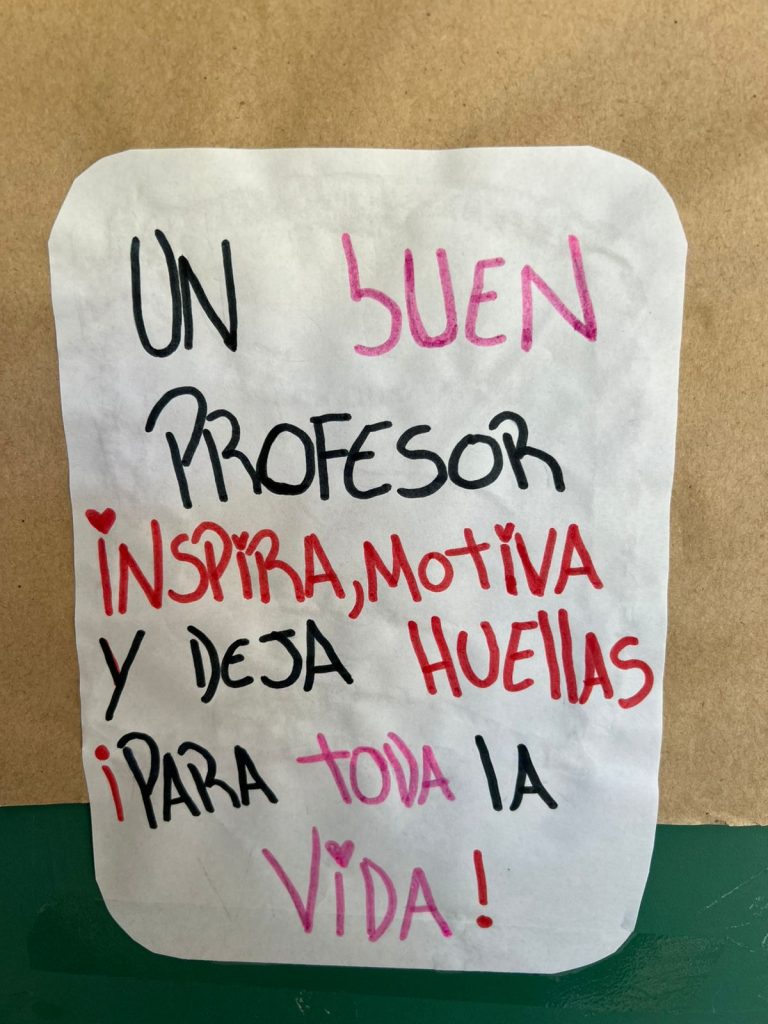 UN bUEN
PROFESOR
iNSPiRA, MOtiVA
Y DEJA HUEllAS
¡PARA tODA lA
ViDA!